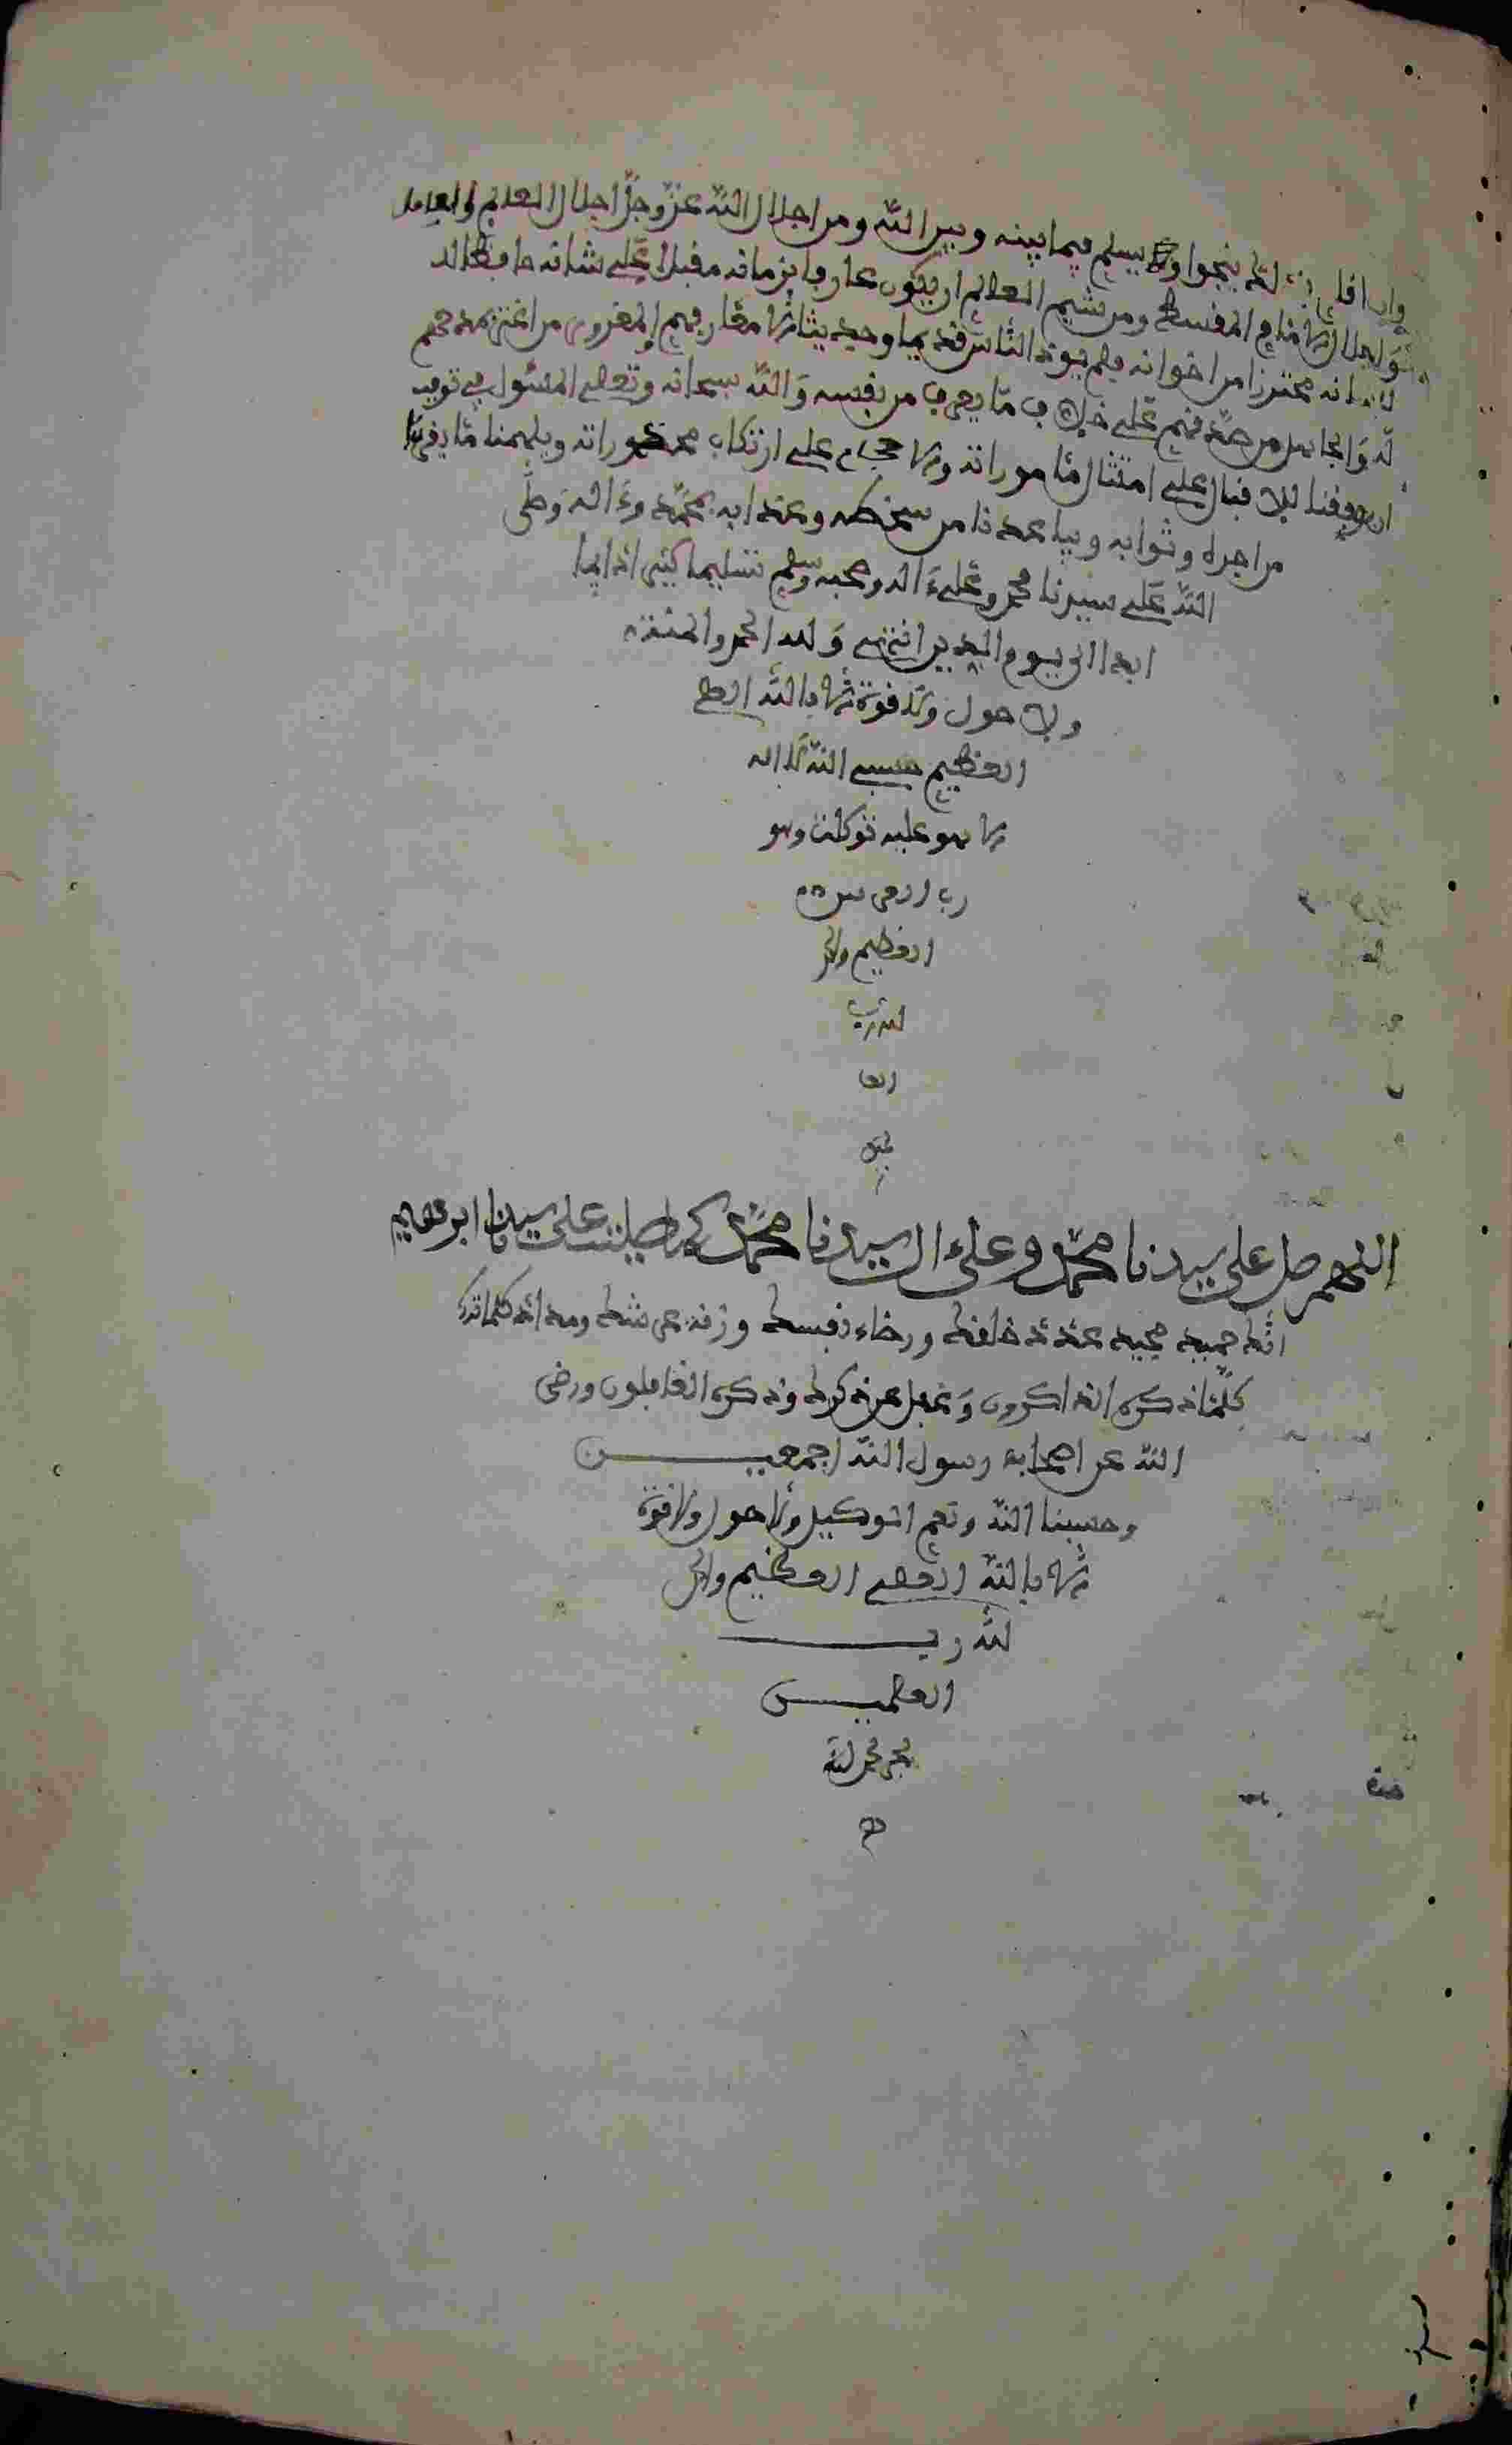 بذلك ينجوا ويسلم فيما بينه وبين الله ومن اجلال الله عز وجل اجلال العالم العامل
واجلال الامام المقسط ومن شيم العالم ان يكون عارفا بزمانه مقبلا على شانه حافظا
للسانه محترزا من اخوانه فلم يوذ الناس قديما وحديثا الا معارفهم المغرور من اغتر بمدحهم
له والجاهل من صدقهم على خلاف ما يعرف من نفسه والله سبحانه وتعلى المسئول في
ان يوفقنا للاقبال على امتثال ماموراته والاحجام على ارتكاب محظوراته ويلهمنا ما يقربنا
من اجره وثوابه ويباعدنا من سخطه وعذابه بمحمد وءاله وصلى
الله على سيدنا محمد وعلى ءاله وصحبه وسلم تسليما كثيرا دايما
ابدا الى يوم الدين انتهى ولله الحمد والمنة
ولا حول ولا قوة الا بالله العلي
العظيم حسبي الله لا اله
الا هو عليه توكلت وهو
رب العرش
العظيم والحمد
لله رب
العا
لمين
اللهم صل على سيدنا محمد وعلى ءال سيدنا محمد كما صليت على سيدنا ابرهيم
انك حميد مجيد عدد خلقك ورضاء نفسك وزنة عرشك ومداد كلماتك
كلما ذكره الذاكرون وغفل عن ذكرك وذكره الغافلون ورضي
الله عن اصحاب رسول الله اجمعين
وحسبنا الله ونعم الوكيل ولا حول ولا قوة
الا بالله العلي العظيم والحمد
لله رب
العلمين